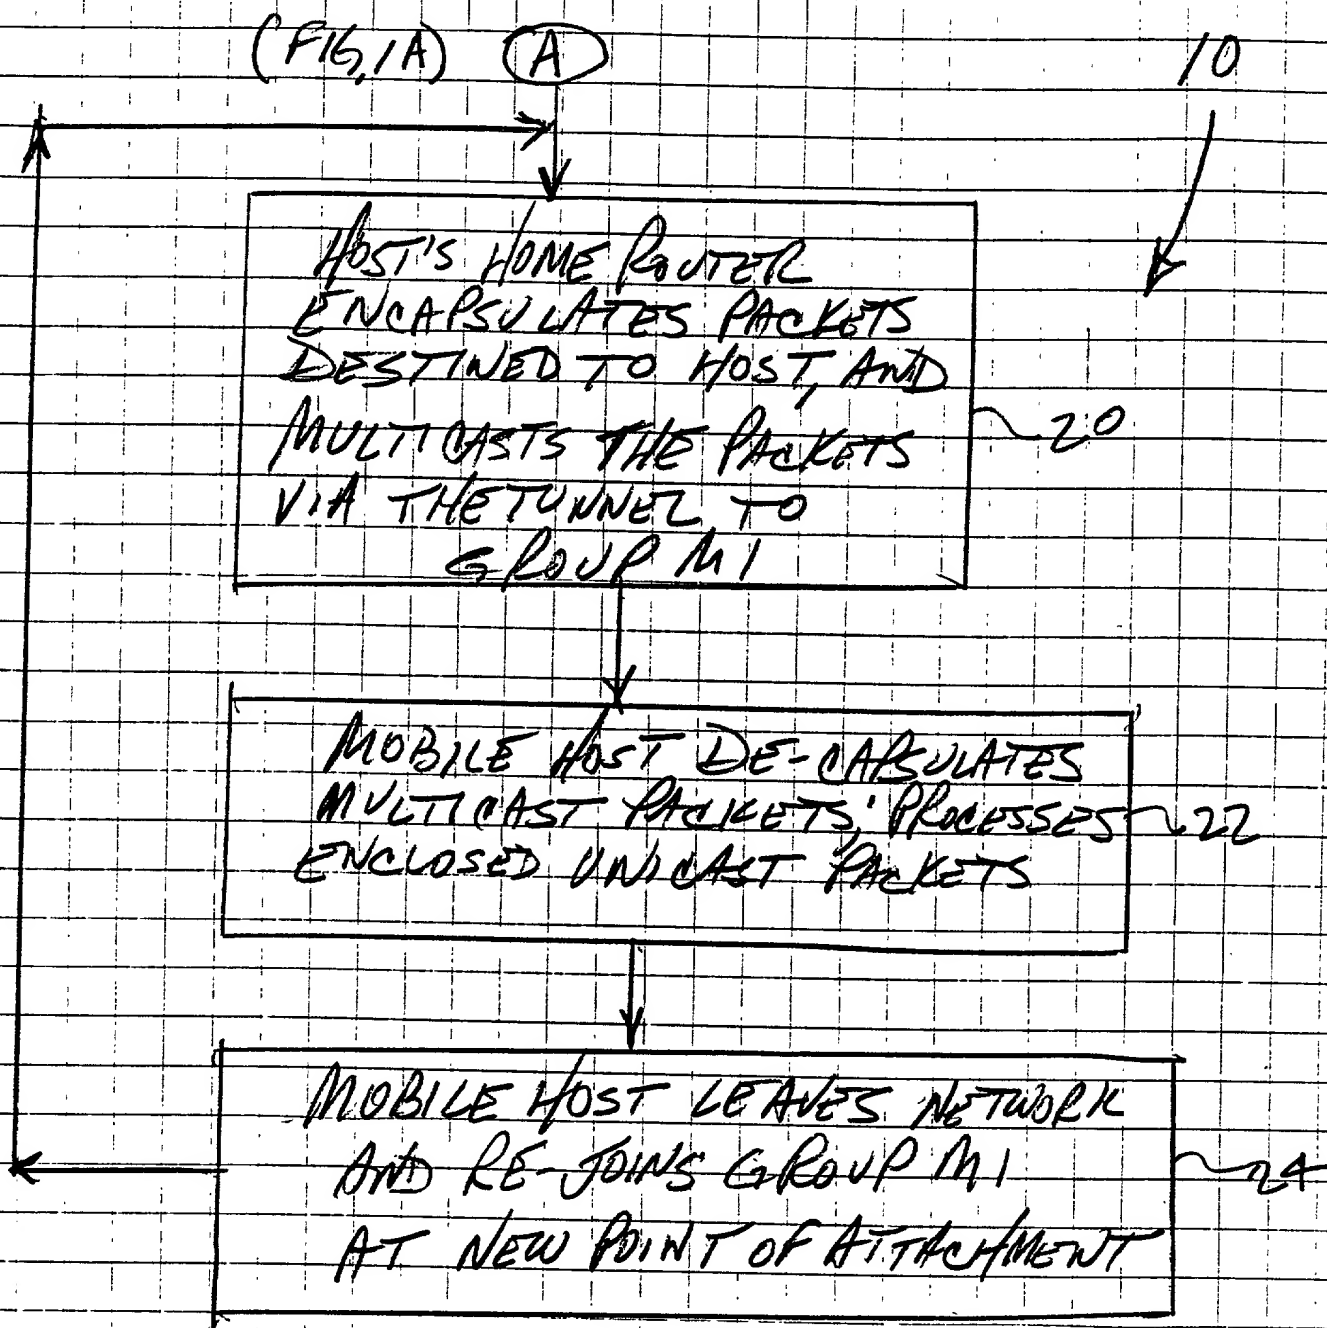 (FIG, 1A) A
10
HOST'S HOME ROUTER
ENCAPSULATES PACKETS
DESTINED TO HOST, AND
MULTICASTS THE PACKETS
VIA THE TUNNEL TO
GROUP M1
20
MOBILE HOST DE-CAPSULATES
MULTICAST PACKETS; PROCESSES
ENCLOSED UNICAST PACKETS
22
MOBILE HOST LEAVES NETWORK
AND RE-JOINS GROUP M1
AT NEW POINT OF ATTACHMENT
24